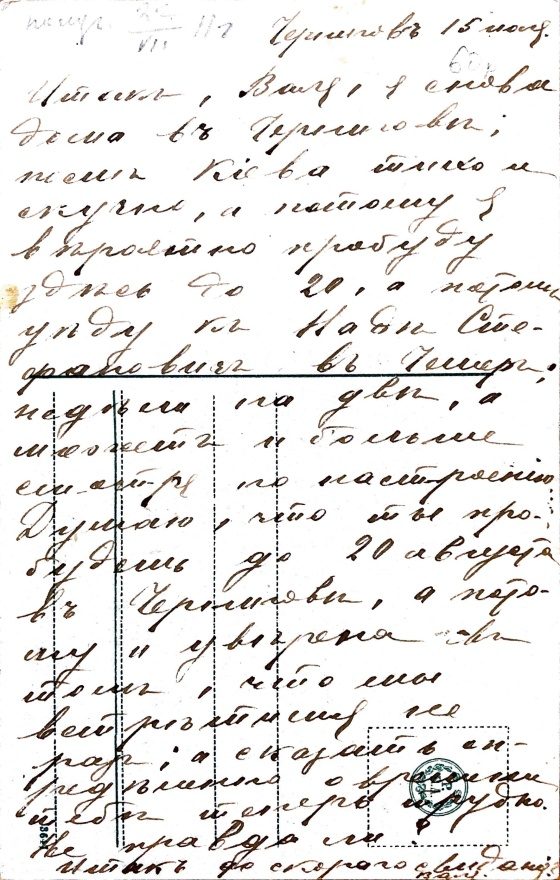 получ. 22/VII 11 г
Черниговъ 15 июля.
Итакъ, Валя, я снова
дома въ Черниговѣ;
послѣ Кіева тихо и
скучно, а потому я
вѣроятно пробуду
здѣсь до 20, а потомъ
уѣду къ Надѣ Сте-
фановичъ въ
недѣли на двѣ, а
можетъ и больше
смотря по настроенію
Думаю, что ты про-
будешь до 20 августа
въ Черниговѣ, а пото-
му и увѣрена въ
томъ, что мы
встрѣтимся не
разъ; а сказать оп-
редѣленно о времени
тебѣ теперь трудно.
Не правда ли?
Итакъ до скораго свиданія